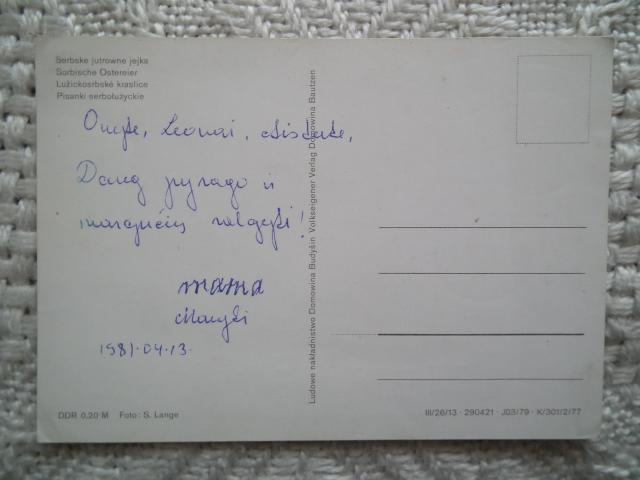 Serbske jutrowne jejka
Sorbische Ostereier
Łužickosrbské kraslice
Pisanki serbołużyckie
Onyte, Leonai,
Daug pyrago ir
margučių valgyti!
mama
Marytė
1981.04.13.
DDR 0,20 M Foto: S. Lange
Ludowe nakładnistwo Domowina Budyšin Volkseigener Verlag Domowina Bautzen
III/26/13 · 290421 · J03/79 · K/301/2/77